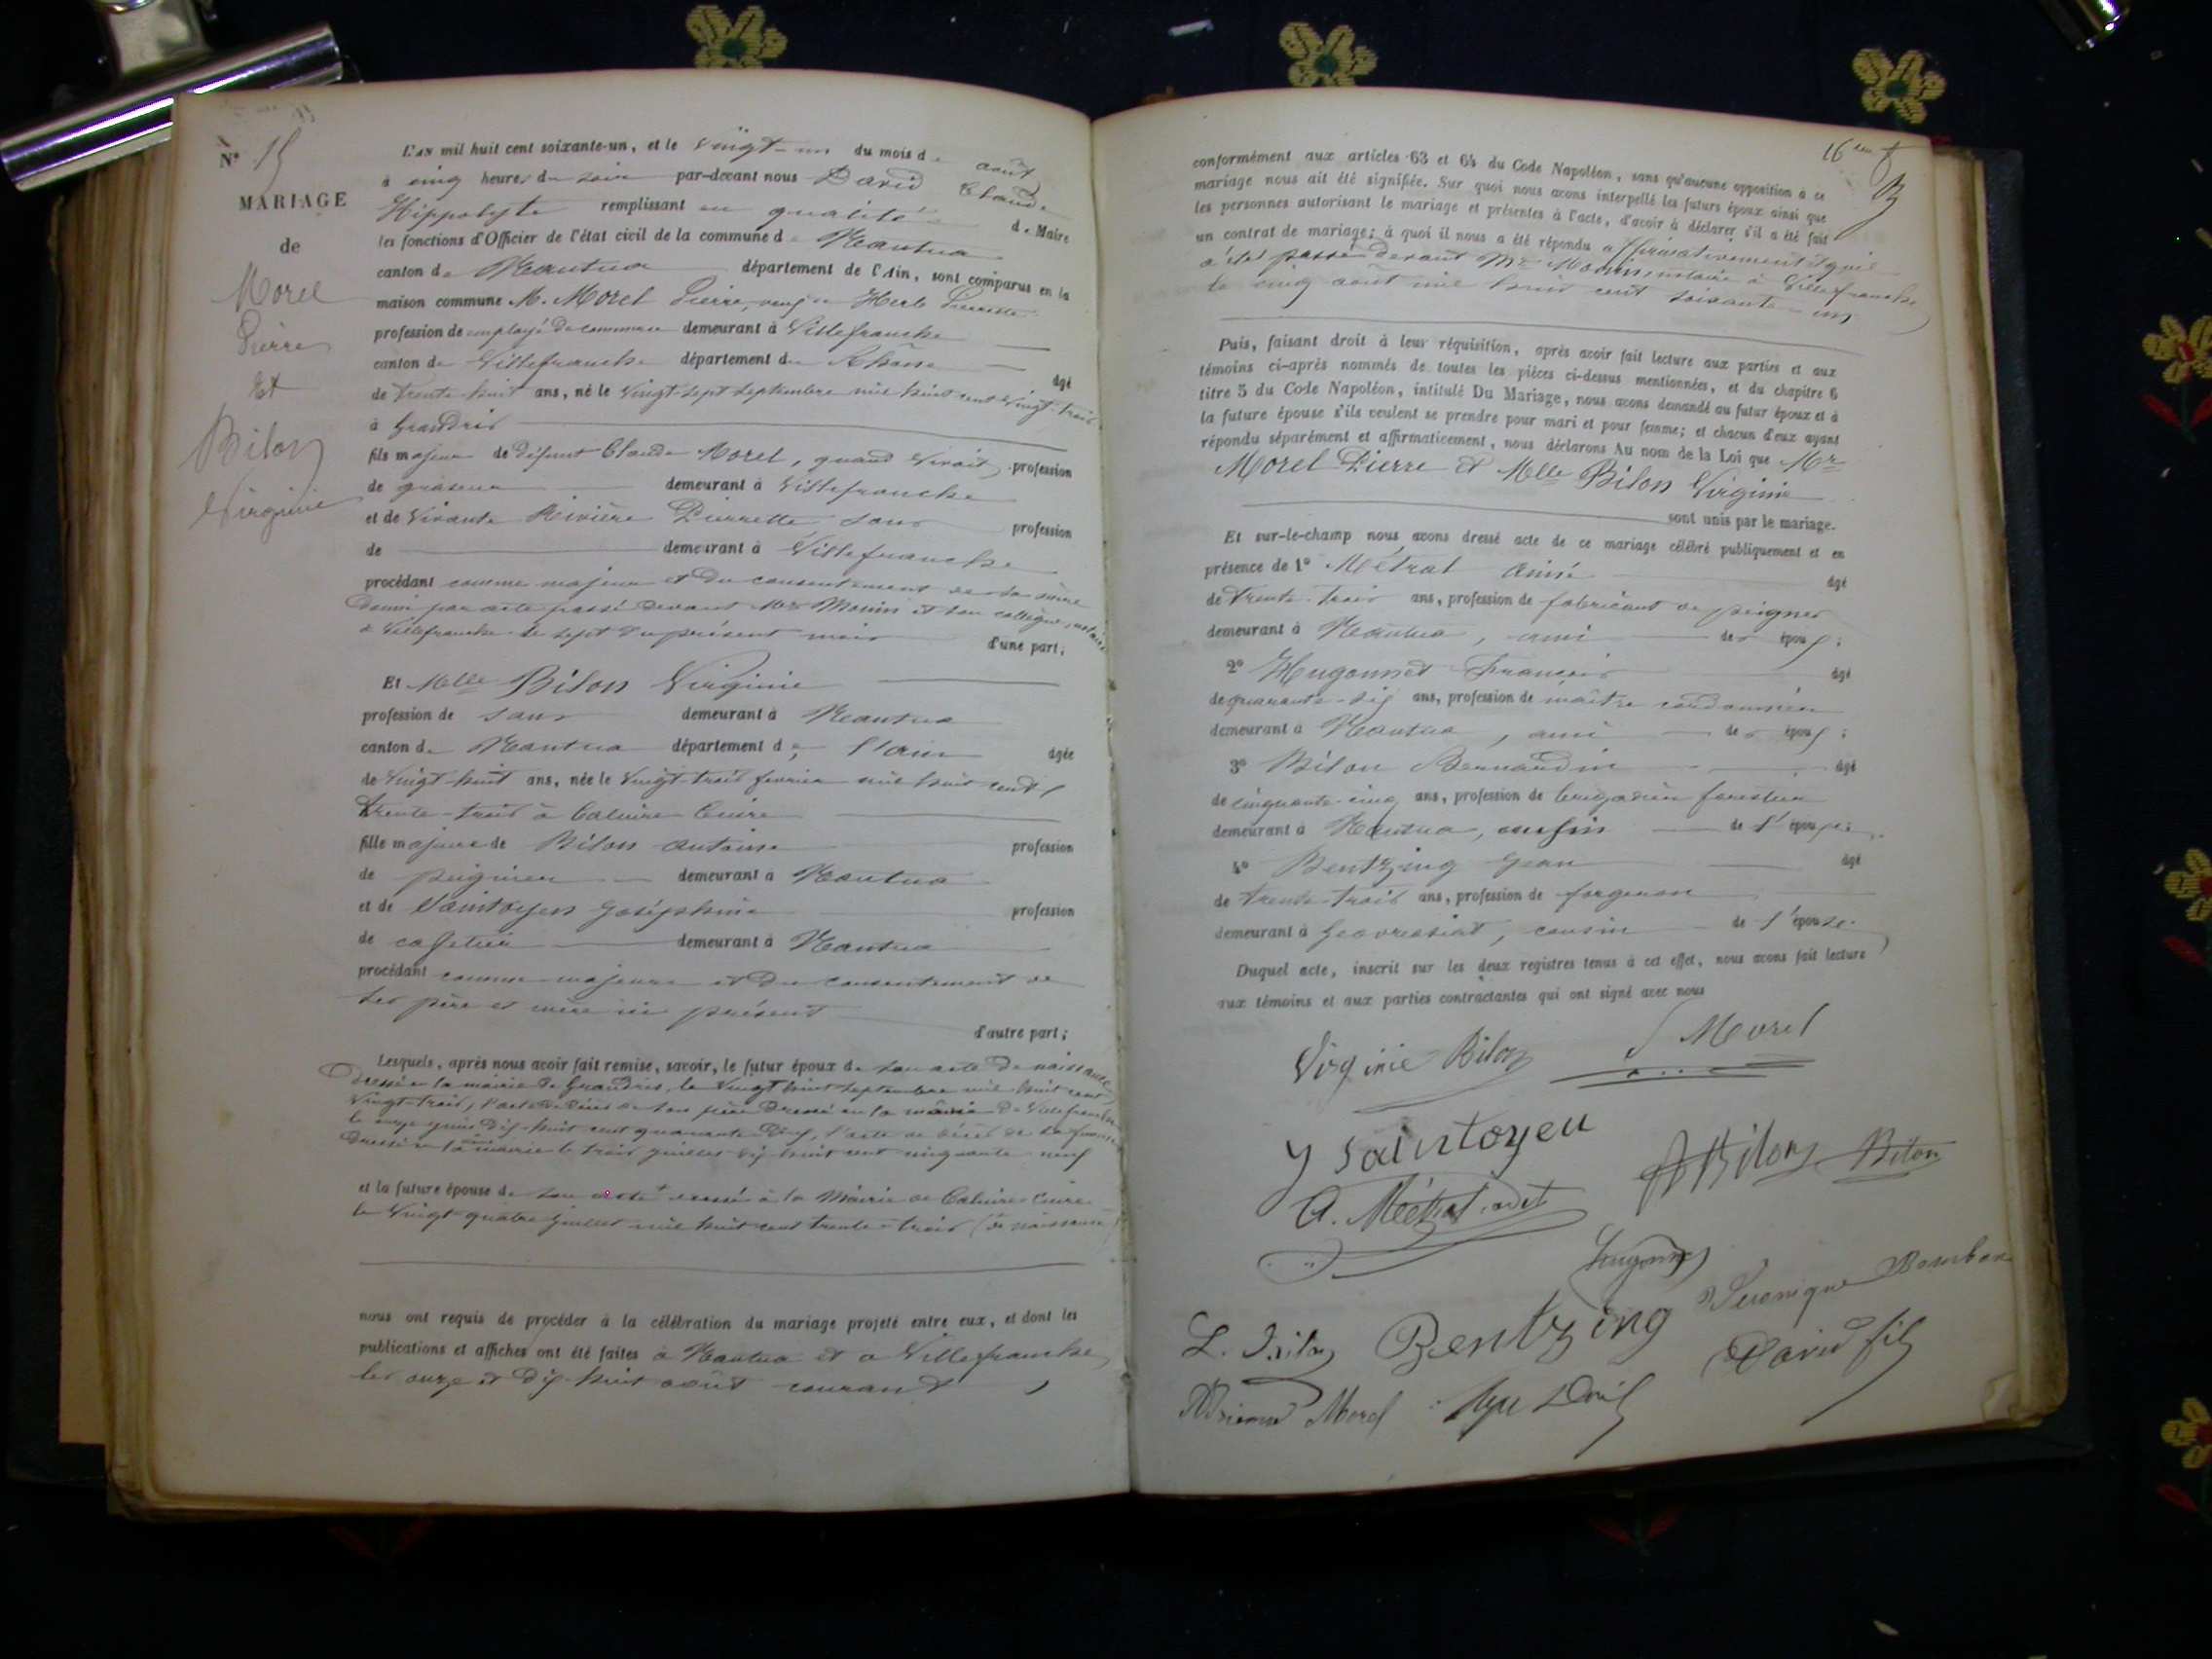 N° 15
MARIAGE
de
Morel
Pierre
Et
Bilon
Virginie
L'AN mil huit cent soixante-un, et le vingt-un du mois d'août
à cinq heures du soir par-devant nous David Claude
Hippolyte remplissant en qualité de Maire
les fonctions d'Officier de l'état civil de la commune de Nantua
canton de Nantua département de l'Ain, sont comparus en la
maison commune M. Morel Pierre, veuf
profession de employé de commerce demeurant à Villefranche
canton de Villefranche département du Rhône âgé
de trente-huit ans, né le vingt-sept septembre mil huit cent vingt-trois
à Grandris
fils majeur de défunt Claude Morel, quand vivait, profession
de demeurant à Villefranche
et de vivante Rivière Pierrette, sans profession
de demeurant à Villefranche
procédant comme majeur et du consentement de sa mère
donné par acte passé devant Mes Monin et son collègue, notaires
à Villefranche le sept du présent mois d'une part;
Et Melle Bilon Virginie
profession de sans demeurant à Nantua
canton de Nantua département de l'ain âgée
de vingt-huit ans, née le vingt-trois mil huit cent
trente-trois à Caluire Cuire
fille majeure de Bilon Antoine profession
de demeurant à Nantua
et de Saintoyen Joséphine profession
de cafetier demeurant à Nantua
procédant comme majeure et du consentement de
ses père et mère ici présent
d'autre part;
Lesquels, après nous avoir fait remise, savoir, le futur époux de son acte de naissance
dressé à la mairie de Grandris, le vingt huit septembre mil huit cent
vingt-trois, l'acte de décès de son père dressé en la mairie de Villefranche
le onze juin dix-huit cent quarante, l'acte de décès de sa femme
dressé en la mairie le trois juillet dix huit cent cinquante neuf
et la future épouse de son acte dressé à la Mairie de Caluire Cuire
le vingt-quatre mil huit cent trente-trois (de naissance)
nous ont requis de procéder à la célébration du mariage projeté entre eux, et dont les
publications et affiches ont été faites à Nantua et à Villefranche
les onze et dix-huit août courant,
conformément aux articles 63 et 64 du Code Napoléon, sans qu'aucune opposition à ce
mariage nous ait été signifiée. Sur quoi nous avons interpellé les futurs époux ainsi que
les personnes autorisant le mariage et présentes à l'acte, d'avoir à déclarer s'il a été fait
un contrat de mariage; à quoi il nous a été répondu affirmativement et qu'il
a été passé devant Me Monin notaire à Villefranche
le cinq août mil huit cent soixante-un
Puis, faisant droit à leur réquisition, après avoir fait lecture aux parties et aux
témoins ci-après nommés de toutes les pièces ci-dessus mentionnées, et du chapitre 6
titre 5 du Code Napoléon, intitulé Du Mariage, nous avons demandé au futur époux et à
la future épouse s'ils veulent se prendre pour mari et pour femme; et chacun d'eux ayant
répondu séparément et affirmativement, nous déclarons Au nom de la Loi que Mr
Morel Pierre et Melle Bilon Virginie
sont unis par le mariage.
Et sur-le-champ nous avons dressé acte de ce mariage célébré publiquement et en
présence de 1° Métral Aimé âgé
de trente-trois ans, profession de fabricant de peignes
demeurant à Nantua, ami des époux;
2° Hugonnet François âgé
de quarante-six ans, profession de maître cordonnier
demeurant à Nantua, ami des époux;
3° Bilon Bernardin âgé
de cinquante-cinq ans, profession de brigadier forestier
demeurant à Nantua, cousin de l'épouse
4° Bentzing Jean âgé
de trente-trois ans, profession de forgeron
demeurant à Geovreissiat, cousin de l'épouse.
Duquel acte, inscrit sur les deux registres tenus à cet effet, nous avons fait lecture
aux témoins et aux parties contractantes qui ont signé avec nous
Virginie Bilon Morel
J Saintoyen
Bilon Bilon
A. Métral
Bentzing
David fils
Morel